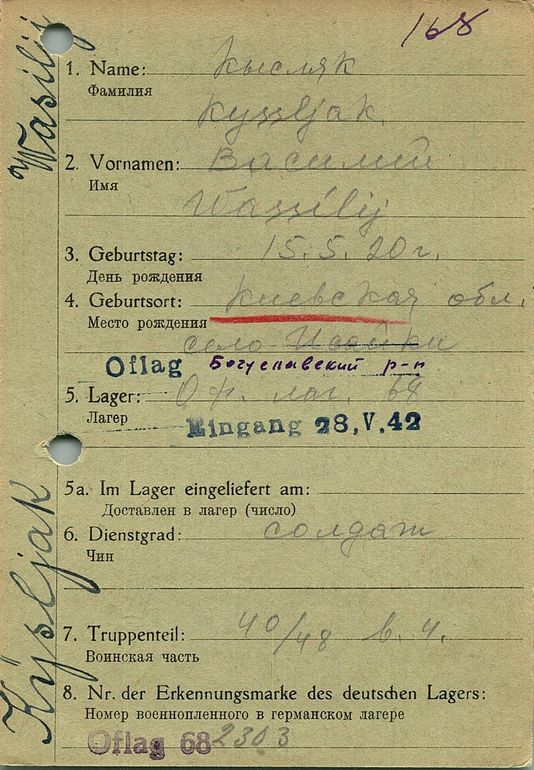 168
Wasilij
1. Name: Кысляк
Фамилия
Kyssljak.
2. Vornamen: Василий
Имя
Wassilij
3. Geburtstag: 15.5.20г.
День рождения
4. Geburtsort: Киевская обл.
Место рождения
село Исайки
Oflag Богуславский р-н
5. Lager: Оф. лаг. 68
Лагер
Eingang 28.V.42
Kÿsljak
5a. Im Lager eingeliefert am:
Доставлен в лагер (число)
6. Dienstgrad: солдат
Чин
7. Truppenteil: 40/48 в. ч.
Воинская часть
8. Nr. der Erkennungsmarke des deutschen Lagers:
Номер военнопленного в германском лагере
Oflag 68 2303